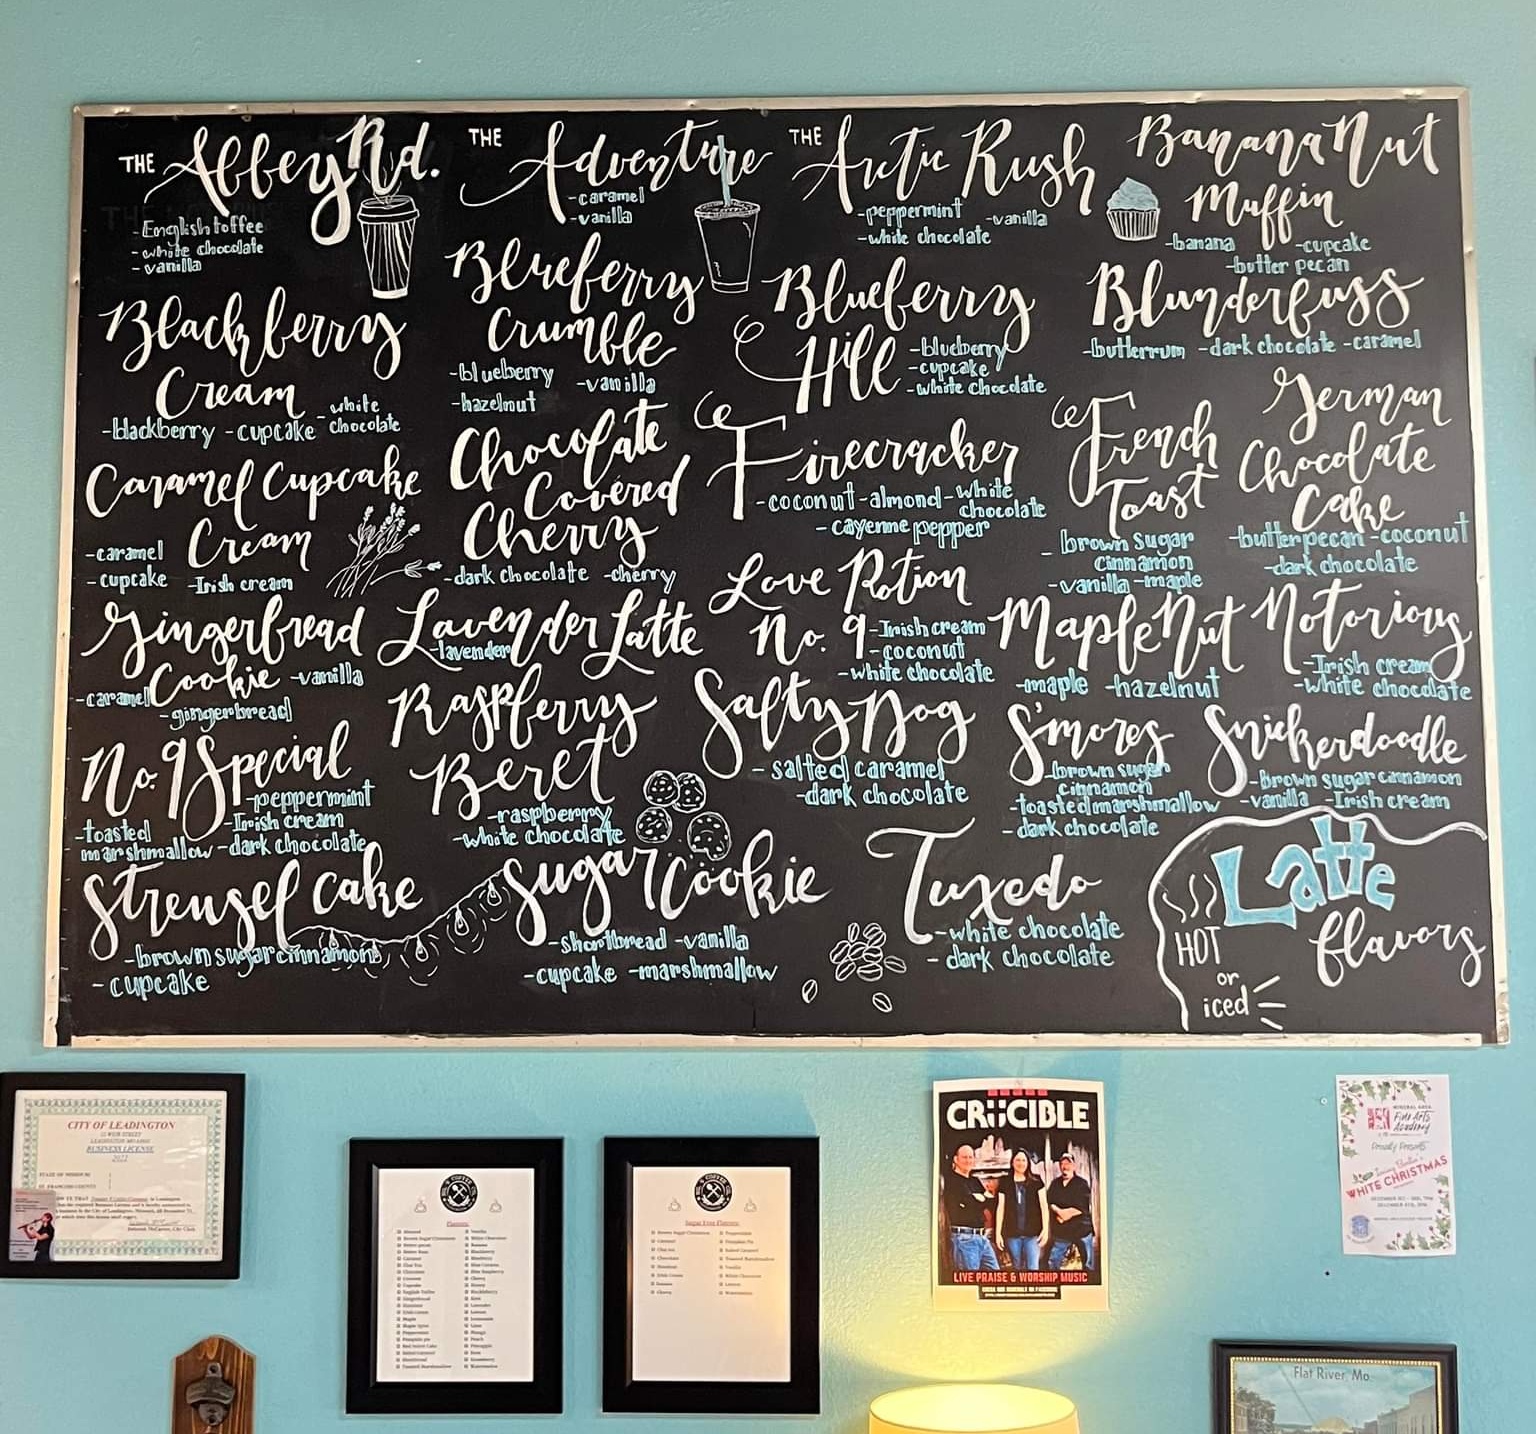 THE Abbey Rd.
-English toffee
-white chocolate
-vanilla
THE Adventure
-caramel
-vanilla
THE Arctic Rush
-peppermint -vanilla
-white chocolate
Banana Nut
Muffin
-banana -cupcake
-butter pecan
Blackberry
Cream
-blackberry -cupcake -white chocolate
Blueberry
Crumble
-blueberry -vanilla
-hazelnut
Blueberry
Hill
-blueberry
-cupcake
-white chocolate
Blunderbuss
-butterrum -dark chocolate -caramel
Caramel Cupcake
Cream
-caramel
-cupcake -Irish cream
Chocolate
Covered
Cherry
-dark chocolate -cherry
Firecracker
-coconut -almond -white chocolate
-cayenne pepper
French
Toast
- brown sugar
cinnamon
-vanilla -maple
German
Chocolate
Cake
-butterpecan -coconut
-dark chocolate
Gingerbread
Cookie
-caramel -vanilla
-gingerbread
Lavender Latte
-lavender
Love Potion
No. 9
-Irish cream
-coconut
-white chocolate
Maple Nut
-maple -hazelnut
Notorious
-Irish cream
-white chocolate
No. 9 Special
-peppermint
-Irish cream
-toasted
marshmallow -dark chocolate
Raspberry
Beret
-raspberry
-white chocolate
Salty Dog
- salted caramel
-dark chocolate
S'mores
-brown sugar
cinnamon
-toasted marshmallow
- dark chocolate
Snickerdoodle
-brown sugar cinnamon
-vanilla -Irish cream
Streusel Cake
-brown sugar cinnamon
- cupcake
Sugar Cookie
-shortbread -vanilla
-cupcake -marshmallow
Tuxedo
-white chocolate
- dark chocolate
Latte
flavors
HOT
or
iced
CITY OF LEADINGTON
BUSINESS LICENSE
STATE OF MISSOURI
Flavors:
Sugar Free Flavors:
CRUCIBLE
LIVE PRAISE & WORSHIP MUSIC
Fine Arts
Academy
Proudly Presents
Irving Berlin's
WHITE CHRISTMAS
Flat River, Mo.